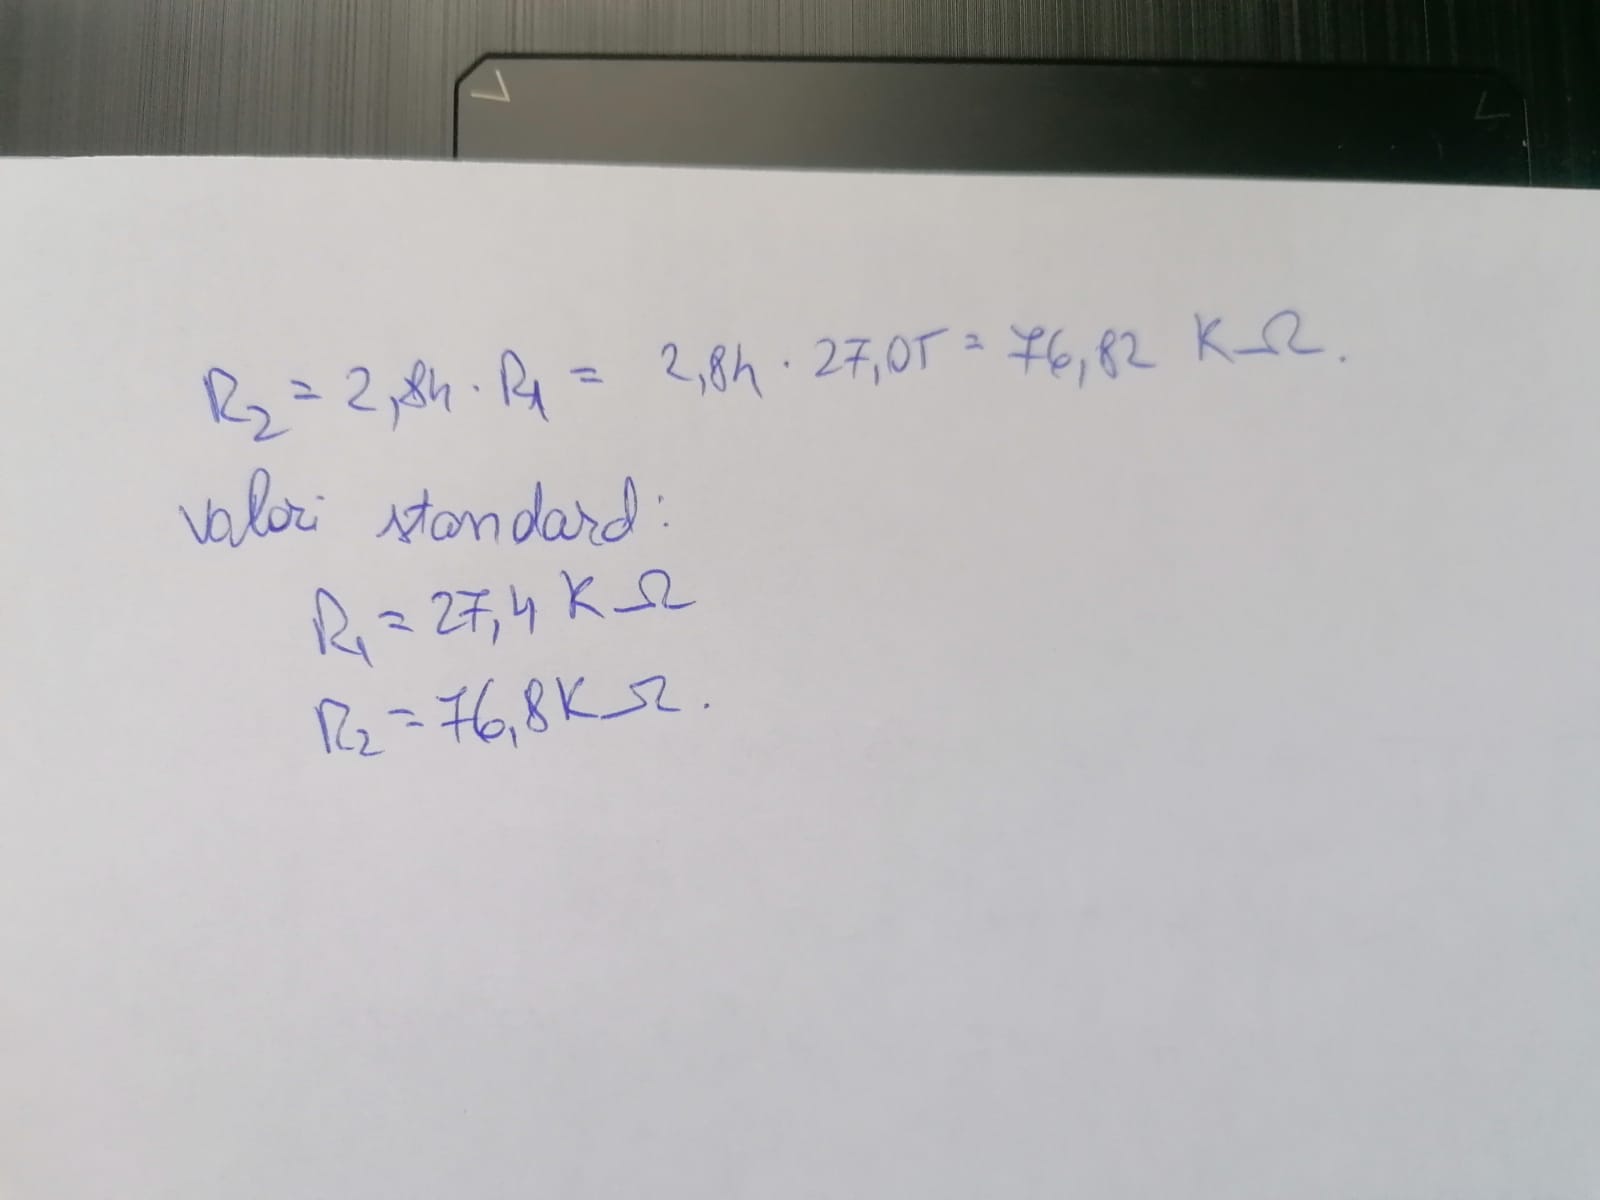 R₂ = 2,84 · R₁ = 2,84 · 27,05 = 76,82 KΩ.
valori standard:
R₁ = 27,4 KΩ
R₂ = 76,8 KΩ.